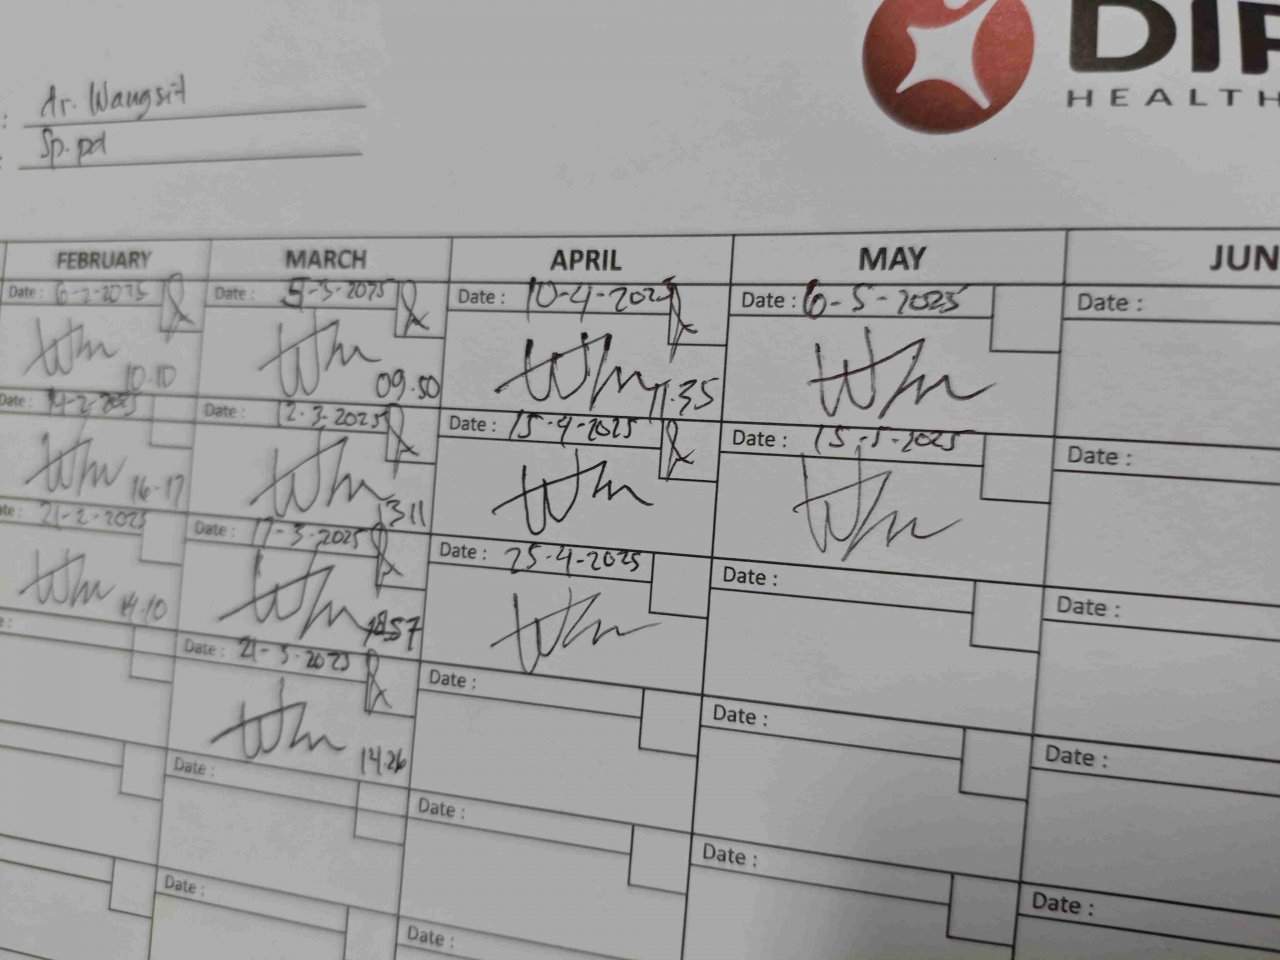 : dr. Wangsit
: Sp.pd
HEALTH
FEBRUARY MARCH APRIL MAY JUN
Date : 6-2-2025 Date : 5-3-2025 Date : 10-4-2025 Date : 6-5-2025 Date :
10.10 09.50 11.35
Date : 14-2-2025 Date : 12.3.2025 Date : 15-4-2025 Date : 15-5-2025 Date :
16-17 1311
21-2-2025 Date : 17-3-2025 Date : 25-4-2025 Date : Date :
14.10
Date : 21-3-2025 Date : Date : Date :
14.26
Date : Date : Date : Date :
Date : Date :